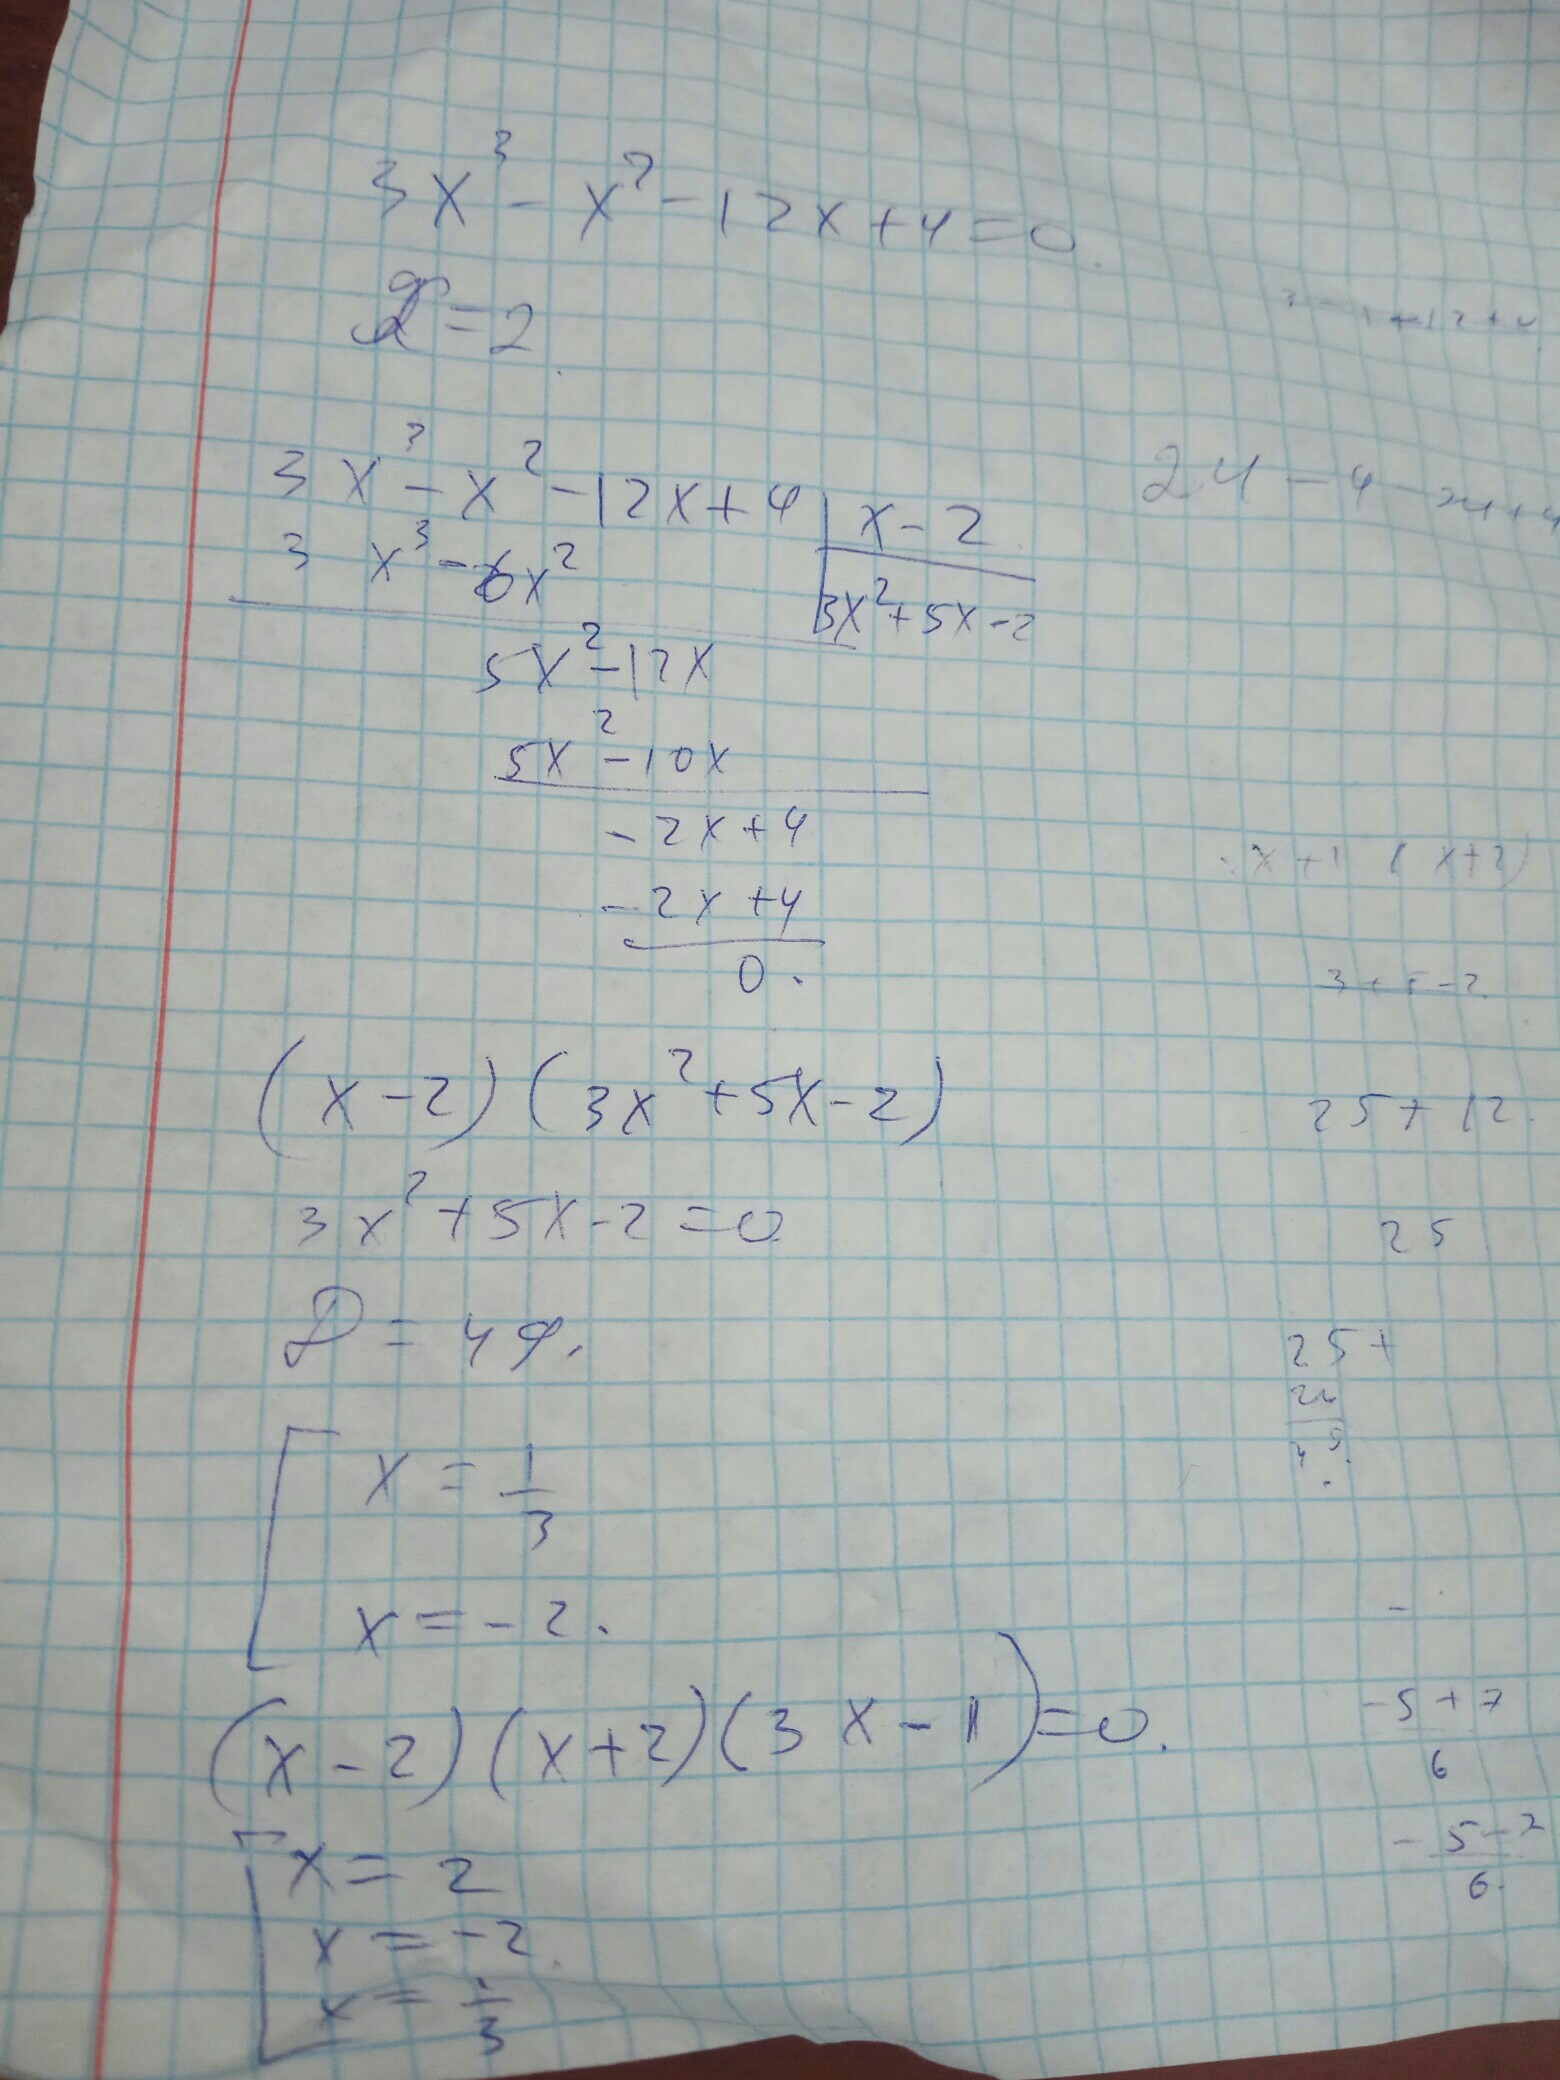 3x³ - x² - 12x + 4 = 0.
= 2
3 - 1 + 12 + 4.
3x³ - x² - 12x + 4 | x - 2
24 - 4 - 24 + 4
3x³ - 6x²
3x² + 5x - 2
5x² - 12x
5x² - 10x
- 2x + 4
x + 1 ( x + 2)
- 2x + 4
0.
3 + 5 - 2.
(x - 2)(3x² + 5x - 2)
25 + 12.
3x² + 5x - 2 = 0
25
D = 49.
25 +
24
49.
x = 1/3
x = - 2.
-
(x - 2)(x + 2)(3x - 1) = 0.
-5 + 7
6
x = 2
- 5 - 7
6.
x = -2.
x = 1/3